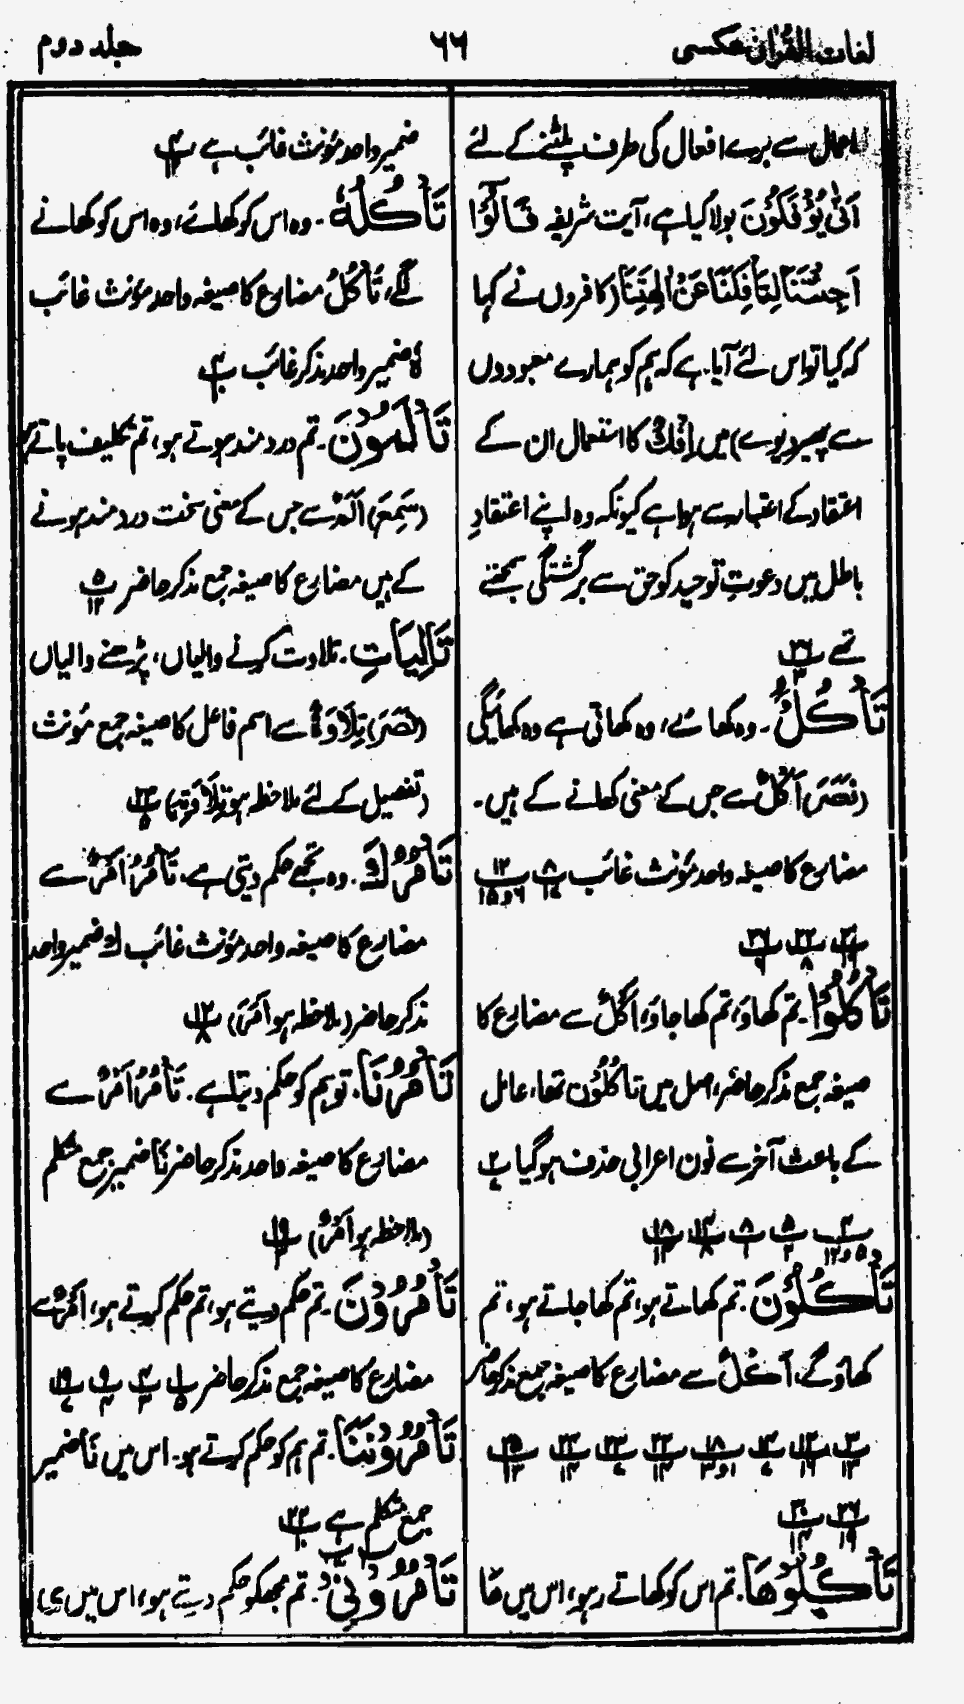 لغات القرآن عکسی
۶۶
جلد دوم
اعمال سے برے افعال کی طرف پلٹنے کے لئے
اَنّٰی یُؤْفَکُوْنَ بولا گیا ہے، آیت شریفہ قَالُوْٓا
اَجِئْتَنَا لِتَاْفِکَنَا عَنْ اٰلِهَتِنَا (کافروں نے کہا
کہ کیا تو اس لئے آیا ہے کہ ہم کو ہمارے معبودوں
سے پھیر دیوے) میں اِفْكٌ کا استعمال ان کے
اعتقاد کے اعتبار سے ہوا ہے کیونکہ وہ اپنے اعتقادِ
باطل میں دعوتِ توحید کو حق سے برگشتگی سمجھتے
تھے پ۲۶
تَاْکُلُ۔ وہ کھائے، وہ کھاتی ہے وہ کھائیگی
(نَصَرَ) اَکْلٌ سے جس کے معنی کھانے کے ہیں۔
مضارع کا صیغہ واحد مؤنث غائب پ۸ پ۱۲
تَاْکُلُوْا۔ تم کھاؤ، تم کھا جاؤ، اَکْلٌ سے مضارع کا
صیغہ جمع مذکر حاضر، اصل میں تَاکُلُوْنَ تھا، عامل
کے باعث آخر سے نون اعرابی حذف ہو گیا پ۲
پ۴ پ۵ پ۸ پ۱۴ پ۱۸
تَاْکُلُوْنَ۔ تم کھاتے ہو، تم کھا جاتے ہو، تم
کھاؤ گے، اَکْلٌ سے مضارع کا صیغہ جمع مذکر حاضر
پ۳ پ۱۲ پ۱۴ پ۱۸ پ۲۲ پ۲۳ پ۲۴ پ۲۵
پ۲۶ پ۳۰
تَاْکُلُوْهَا۔ تم اس کو کھاتے رہو، اس میں ھَا
ضمیر واحد مؤنث غائب ہے پ۴
تَاْکُلُهٗ۔ وہ اس کو کھائے، وہ اس کو کھانے
لگے، تَاْکُلُ مضارع کا صیغہ واحد مؤنث غائب
ہٗ ضمیر واحد مذکر غائب پ۴
تَاْلَمُوْنَ۔ تم درد مند ہوتے ہو، تم تکلیف پاتے
(سَمِعَ) اَلَمٌ سے جس کے معنی سخت درد مند ہونے
کے ہیں مضارع کا صیغہ جمع مذکر حاضر پ۵
تَالِیَاتِ۔ تلاوت کرنے والیاں، پڑھنے والیاں
(نَصَرَ) تِلَاوَةٌ سے اسم فاعل کا صیغہ جمع مؤنث
(تفصیل کے لئے ملاحظہ ہو تِلَاوَتِہٖ) پ۲۳
تَاْمُرُكَ۔ وہ تجھے حکم دیتی ہے، تَاْمُرُ اَمْرٌ سے
مضارع کا صیغہ واحد مؤنث غائب كَ ضمیر واحد
مذکر حاضر (ملاحظہ ہو اَمَرَ) پ۱۲
تَاْمُرُنَا۔ تو ہم کو حکم دیتا ہے۔ تَاْمُرُ اَمْرٌ سے
مضارع کا صیغہ واحد مذکر حاضر نَا ضمیر جمع متکلم
(ملاحظہ ہو اَمْرٌ) پ۱۹
تَاْمُرُوْنَ۔ تم حکم دیتے ہو، تم حکم کرتے ہو، اَمْرٌ سے
مضارع کا صیغہ جمع مذکر حاضر پ۱ پ۴ پ۹ پ۱۹
تَاْمُرُوْنَنَا۔ تم ہم کو حکم کرتے ہو۔ اس میں نَا ضمیر
جمع متکلم ہے پ۲۲
تَاْمُرُوْنِیْ۔ تم مجھ کو حکم دیتے ہو، اس میں (ی)